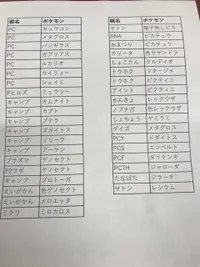 親名 ポケモン
PC キュウコン
PC メタグロス
PC バンギラス
PC ガブリアス
PC ルカリオ
PC カイリュー
PC シェイミ
Pヒルズ ミュウツー
キャンプ オムナイト
キャンプ カブト
キャンプ プテラ
キャンプ ズガイドス
キャンプ リリーラ
キャンプ アーケン
プラズマ ゲノセクト
P2ラボ ゲノセクト
キャンプ プロトーガ
えいがかん 色ゲノセクト
えいがかん メロエッタ
ミクリ ミロカロス
親名 ポケモン
サトシ 帽子無しピカ
ANA ピカチュウ
おまつり ピカチュウ
カリータ 色サザンドラ
しょこたん ケルディオ
トウホク フタージャ
トウホク ビクティニ
アイント ビクティニ
せんきょ レックウザ
ノブナガ 色レックウザ
しょちょう ヤミラミ
ダイゴ メタグロス
PCY ドダイトス
PCS エンペルト
PCF ダイケンキ
PCTH ジャローダ
たなばた ジラーチ
サトシ レシラム